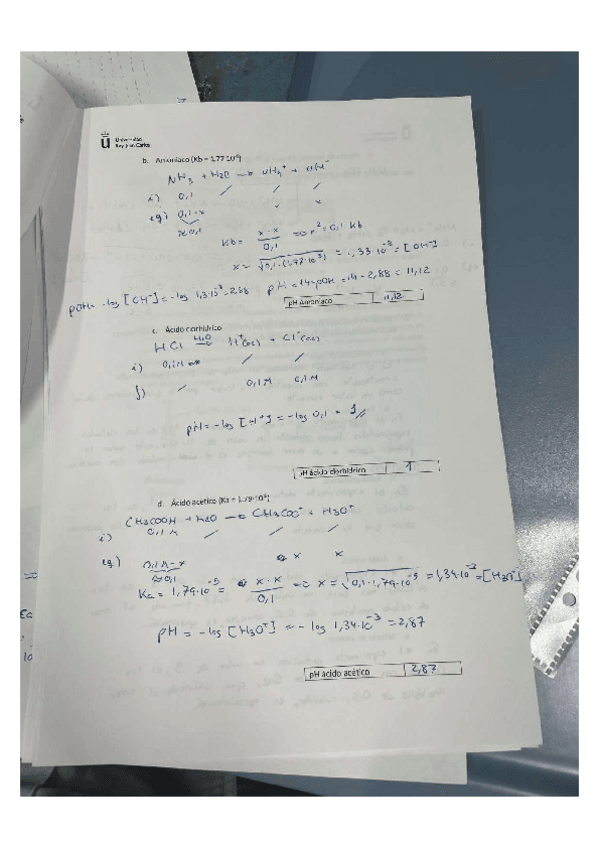 Universidad
Rey Juan Carlos
b. Amoniaco (Kb = 1,77·10⁻⁵)
NH₃ + H₂O → NH₄⁺ + OH⁻
i) 0,1 / /
eq) 0,1-x x x
≈0,1
Kb = x·x / 0,1 => x² = 0,1 Kb
x = √0,1·(1,77·10⁻⁵) = 1,33·10⁻³ = [OH⁻]
pOH = -log [OH⁻] = -log 1,3·10⁻³ = 2,88 pH = 14-pOH = 14-2,88 = 11,12
pH Amoniaco 11,12
c. Ácido clorhídrico
HCl H₂O → H⁺(ac) + Cl⁻(ac)
i) 0,1M / /
f) / 0,1M 0,1M
pH = -log [H⁺] = -log 0,1 = 1
pH ácido clorhídrico 1
d. Ácido acético (Ka = 1,79·10⁻⁵)
CH₃COOH + H₂O → CH₃COO⁻ + H₃O⁺
i) 0,1 M / /
eq) 0,1M-x x x
≈0,1
Ka = 1,79·10⁻⁵ = x·x / 0,1 => x = √0,1·1,79·10⁻⁵ = 1,34·10⁻³ = [H₃O⁺]
pH = -log [H₃O⁺] = -log 1,34·10⁻³ = 2,87
pH ácido acético 2,87